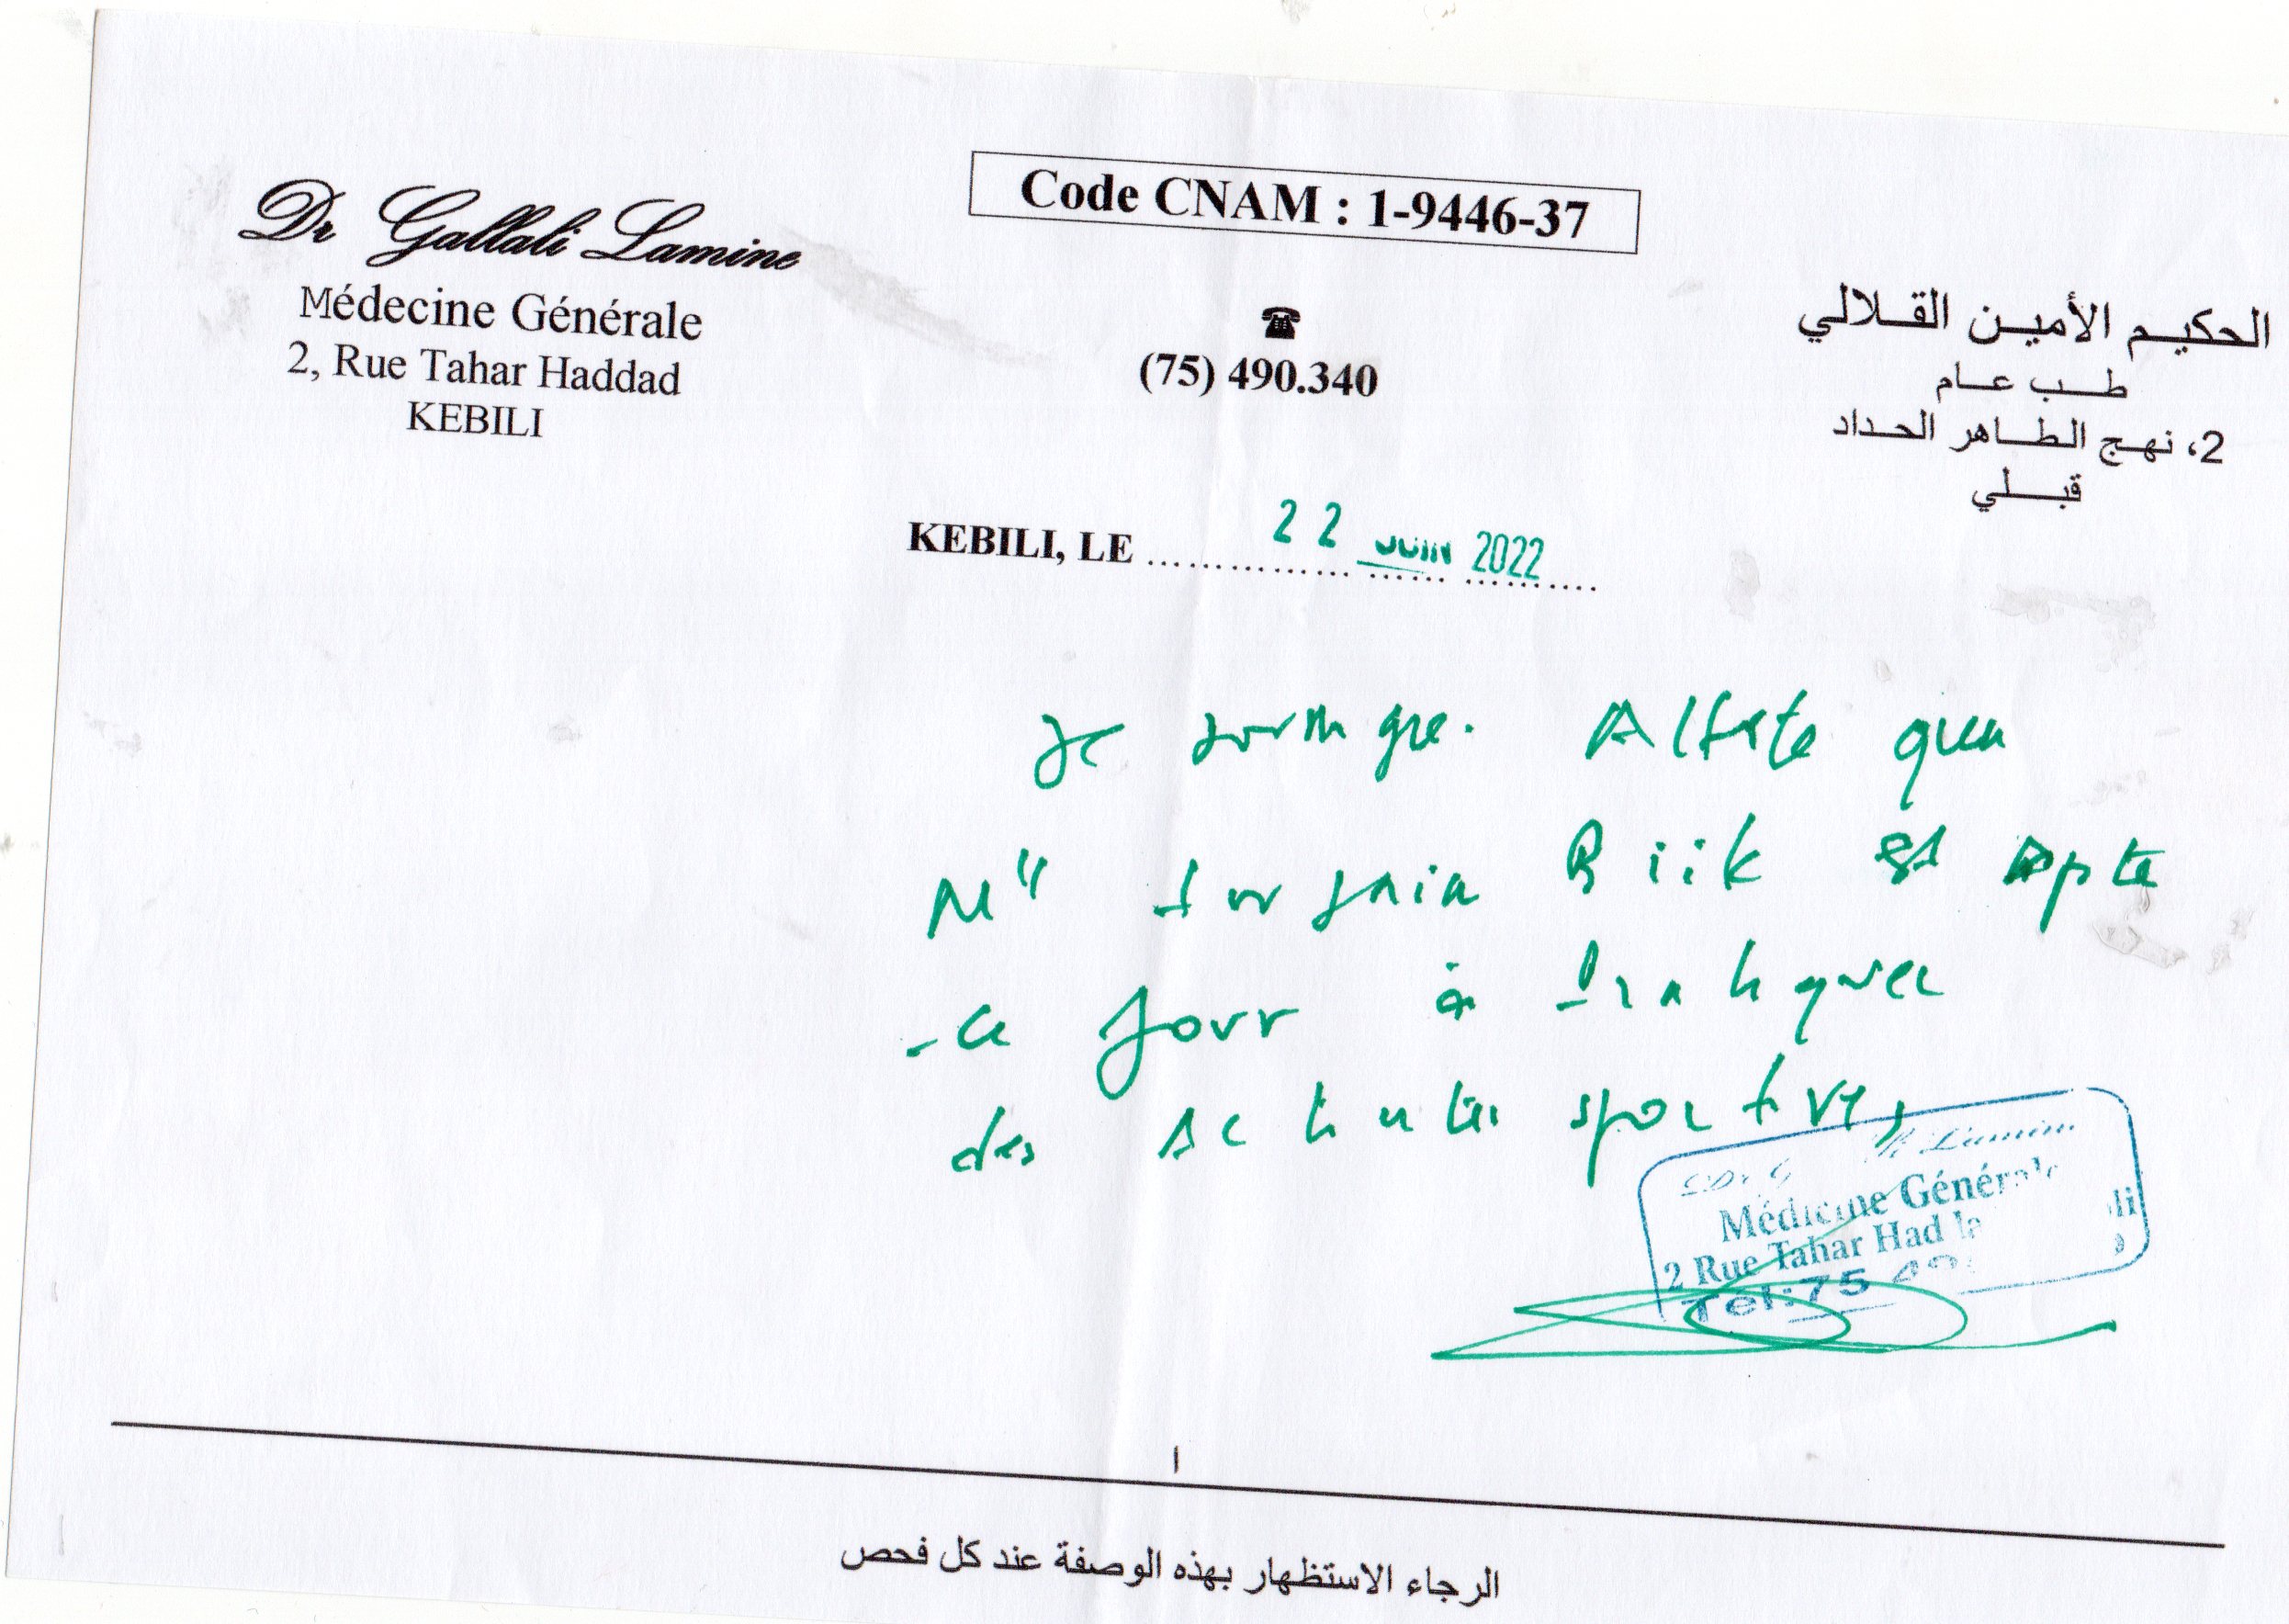 Code CNAM : 1-9446-37
Dr Gallali Lamine
Médecine Générale
2, Rue Tahar Haddad
KEBILI
☎
(75) 490.340
الحكيم الأمين القلالي
طب عام
2، نهج الطاهر الحداد
قبلي
KEBILI, LE 22 JUIN 2022
Je Atteste que
Mlle est apte
ce jour à pratiquer
des activités sportives
Dr G Lamine
Médicine Générale
2 Rue Tahar
Tel:75
الرجاء الاستظهار بهذه الوصفة عند كل فحص